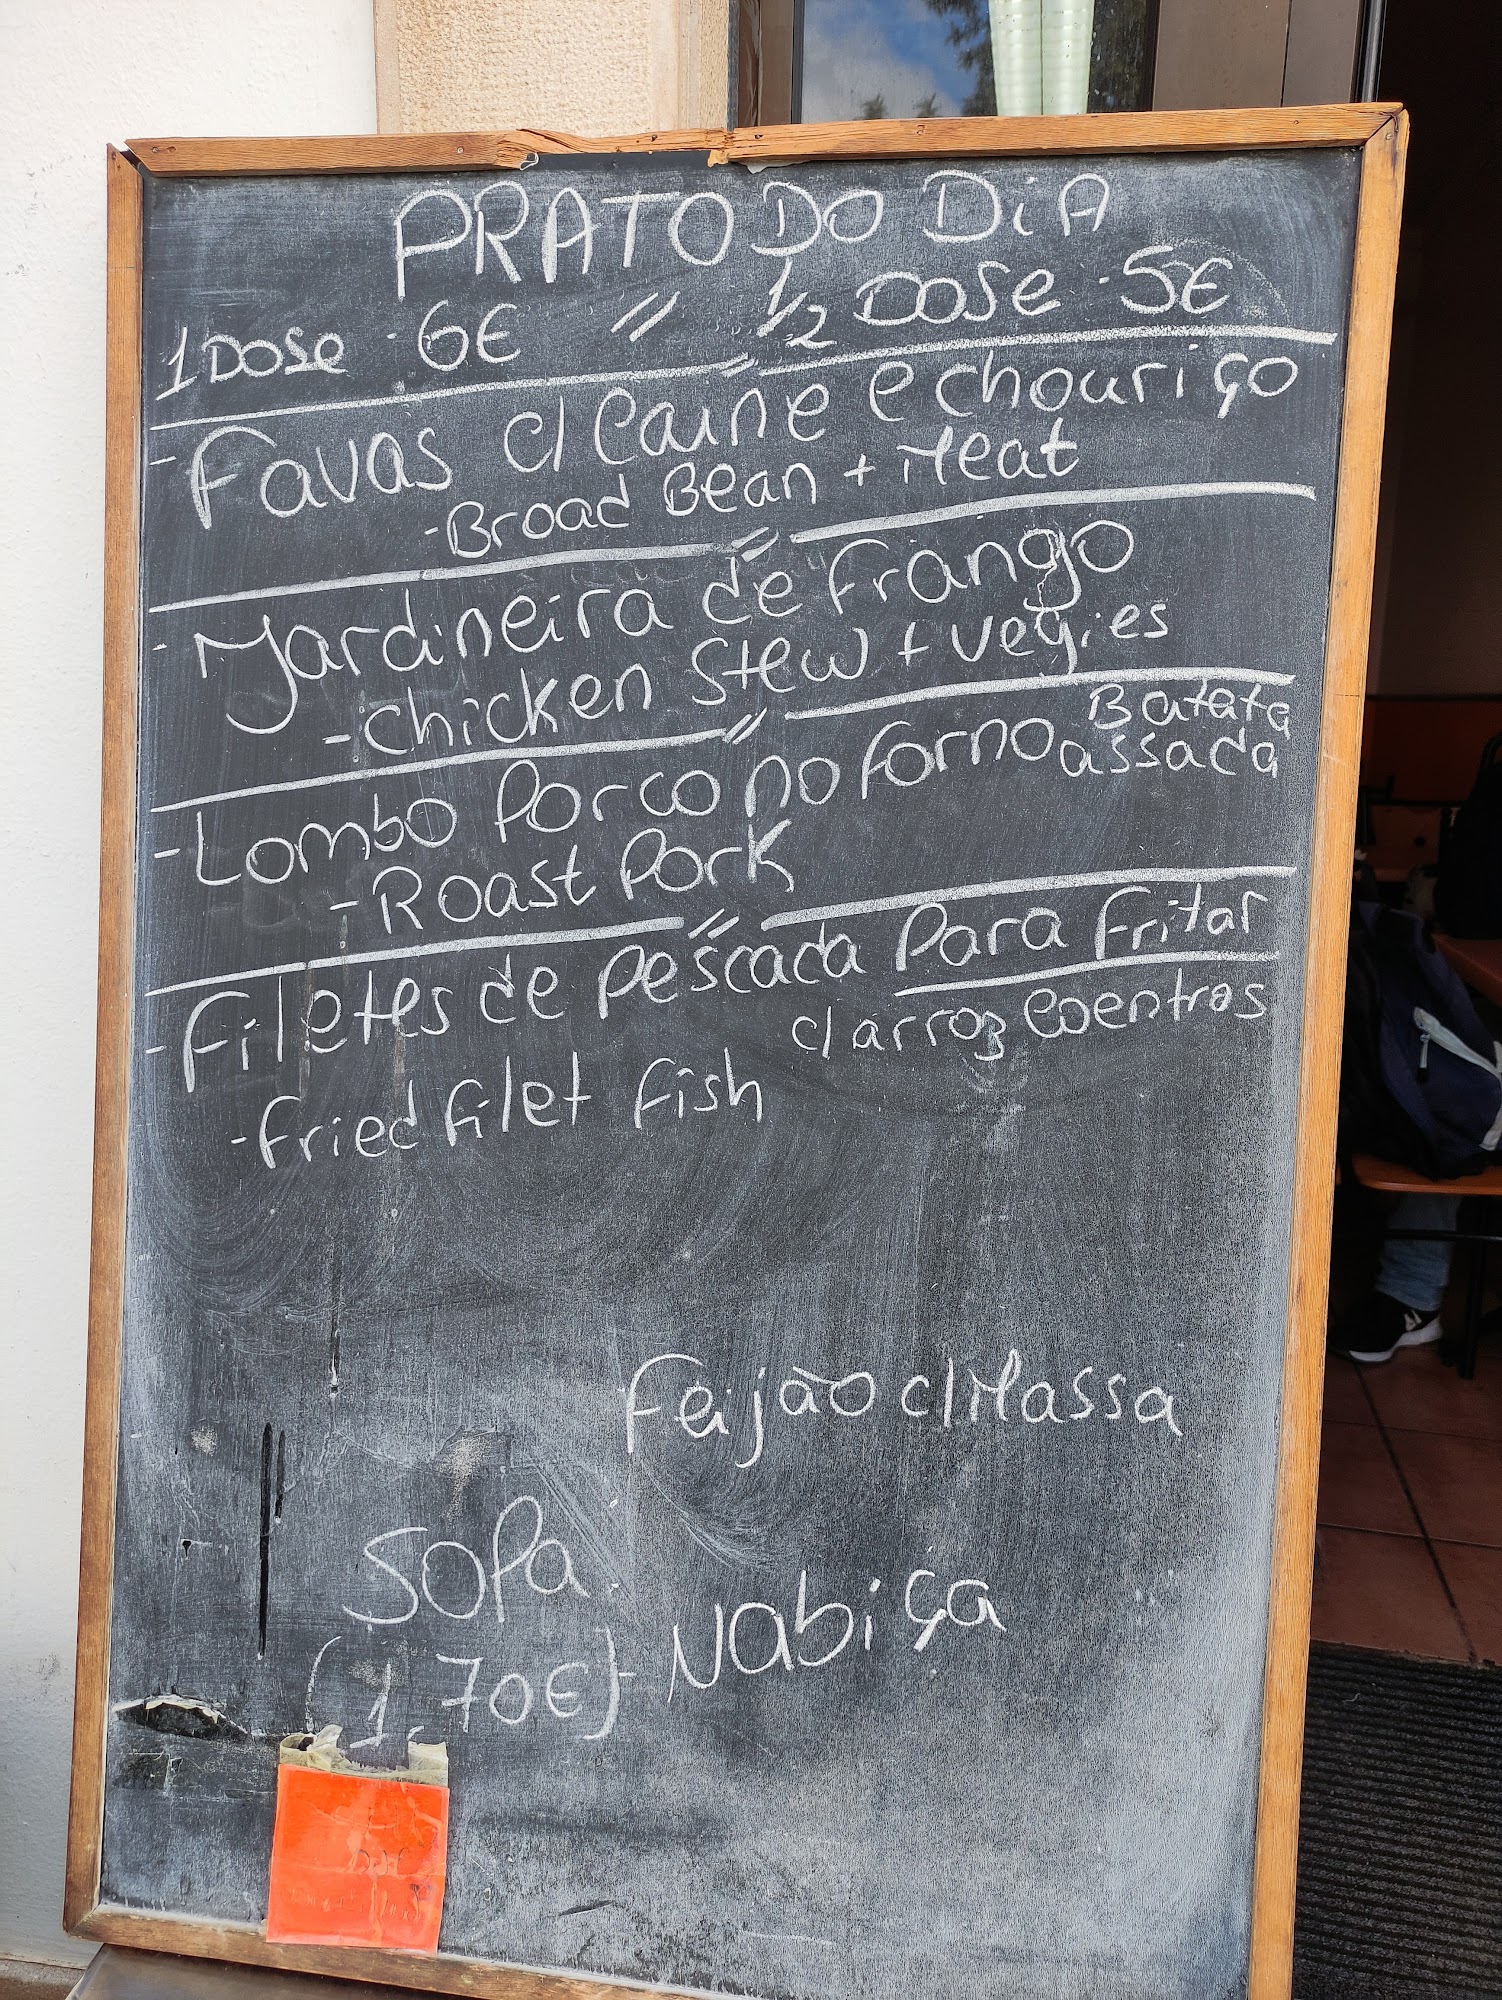 PRATO DO DiA
1 Dose - 6€ // 1/2 Dose - 5€
- Favas c/ Carne e chouriço
- Broad Bean + Meat
- Jardineira de Frango
- chicken stew + vegies
- Lombo Porco no forno Batata assada
- Roast Pork
- Filetes de Pescada Para Fritar
c/ arroz Coentros
- Fried filet Fish
Feijão c/ Massa
Sopa:
(1.70€) - Nabiça